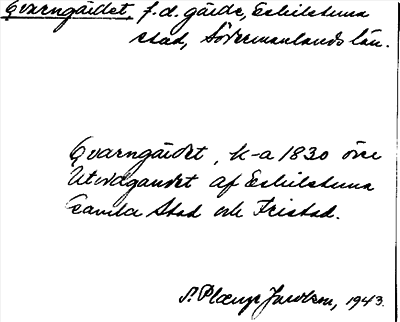 Qvarngärdet, f.d. gärde, Eskilstuna
stad, Södermanlands län.
Qvarngärdet, k-a 1830 över
Utvidgandet af Eskilstuna
Gamla Stad och Fristad.
1943.